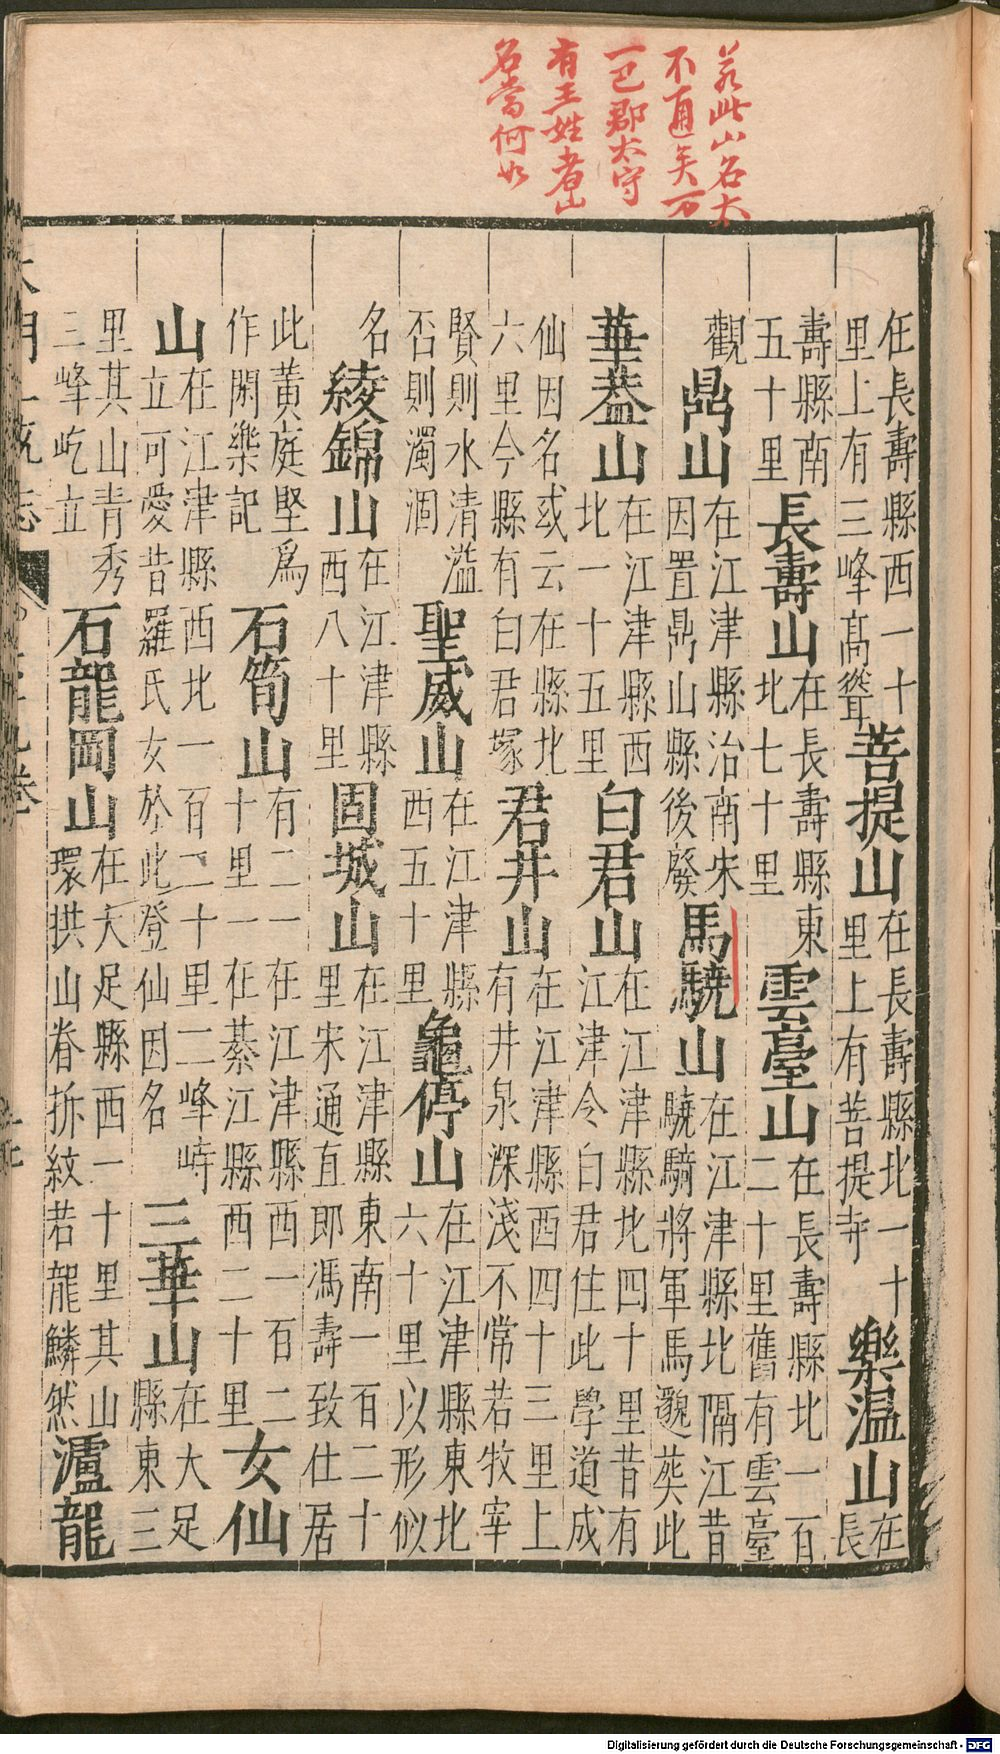 若此山名太
不通矣万
一巴郡太守
有王姓者山
名當何如
在長壽縣西一十里上有三峰高聳菩提山在長壽縣北一十里上有菩提寺樂温山在長
壽縣南五十里長壽山在長壽縣東北七十里雲臺山在長壽縣北一百二十里舊有雲臺
觀鼎山在江津縣治南宋因置鼎山縣後廢馬驍山在江津縣北隔江昔驍騎將軍馬邈葬此
華葢山在江津縣西北一十五里白君山在江津縣北四十里昔有江津令白君住此學道成
仙因名或云在縣北六里今縣有白君塚君井山在江津縣西四十三里上有井泉深淺不常若牧宰
賢則水清溢否則濁涸聖威山在江津縣西五十里龜停山在江津縣東北六十里以形似
名綾錦山在江津縣西八十里固城山在江津縣東南一百二十里宋通直郎馮壽致仕居
此黃庭堅爲作閑樂記石筍山有二一在江津縣西一百二十里一在綦江縣西二十里女仙
山在江津縣西北一百二十里二峰峙立可愛昔羅氏女於此登仙因名三華山在大足縣東三
里其山青秀三峰屹立石龍岡山在大足縣西一十里其山環拱山脊拆紋若龍鱗然瀘龍
大明一統志
Digitalisierung gefördert durch die Deutsche Forschungsgemeinschaft - DFG